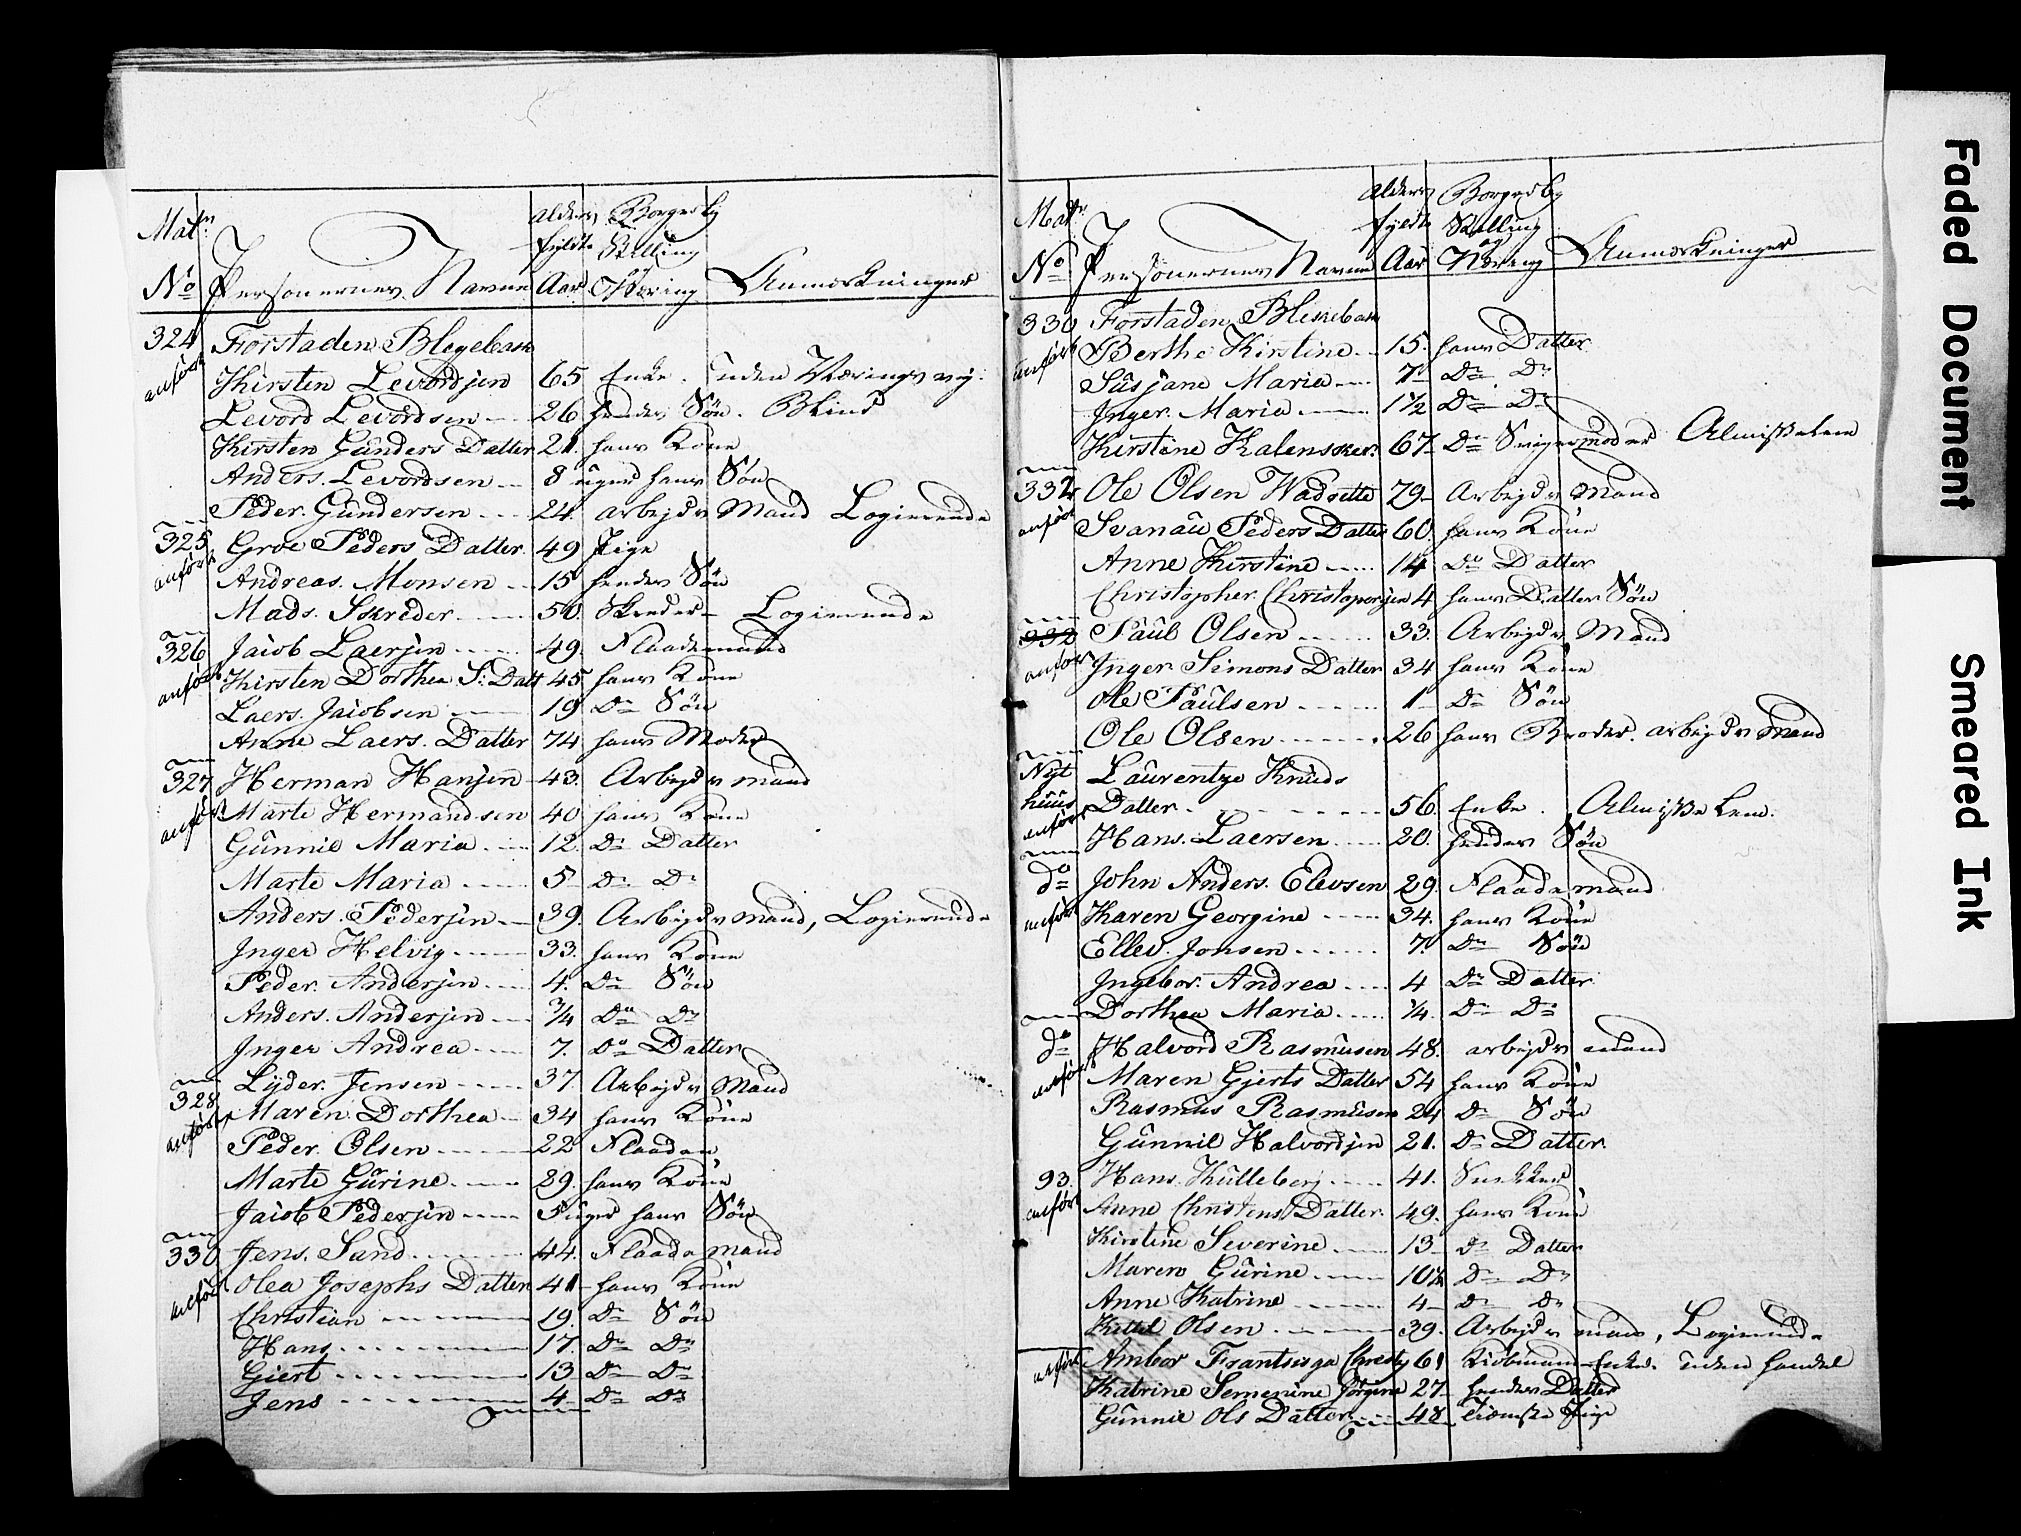 Matr
No
Personernes Navne
Alders
fyldte
Aar
Borgerlig
Stilling
og
Næring
Anmerkninger
324 Forstaden Blegebak
anført Kirsten Levordsen 65 Enke. uden Nærings vej.
Levord Levordsen 26 hendes Søn. Blind
Kirsten Gunders Datter 21. hans Kone
Anders. Levordsen 8 uger hans Søn
Peder. Gundersen 24. arbejds Mand Logierende
325 Groe Peders Datter 49 Pige
anført Andreas. Monsen 15 hendes Søn
Mads. Skreder 50. Skreder Logierende
326 Jacob Laersen 49. Flaademand
anført Kirsten Dorthea S: Datt 45. hans Kone
Laers. Jacobsen 19 Do Søn
Anne Laers. Datter 74 hans Moder
327 Herman Hansen 43. Arbejds mand
anført Marte Hermandsen 40 hans Kone
Gunnil Maria 12. Do Datter
Marte Maria 5 Do Do
Anders. Pedersen 39. Arbejdsmand, Logierende
Inger Helvig 33. hans Kone
Peder. Andersen 4. Do Søn
Anders. Andersen 3/4 Do Do
Inger Andrea 7. Do Datter
328 Lyder. Jensen 37. Arbejds Mand
anført Maren Dorthea 34 hans Kone
Peder. Olsen 22 Flaaden
Marte Gurine 29. hans Kone
Jacob Pedersen 5 uger hans Søn
330 Jens. Sand 44. Flaademand
anført Olea Josephs Datter 41 hans Kone
Christian 19. Do Søn
Hans 17. Do Do
Giert 13 Do Do
Jens 4 Do Do
Matr
No
Personernes Navne
Alders
fyldte
Aar
Borgerlig
Stilling
og
Næring
Anmerkninger
330 Forstaden Blekebak
anført Berthe Kirstine 15. hans Datter
Susjane Maria 7 Do Do
Inger. Maria 1 1/2 Do Do
Kirstine 67 Do Svigermoder Almisselem
331 Ole Olsen Wadsette 79 Arbejds Mand
anført Svanau Peders Datter 60. hans Kone
Anne Kirstine 14 Do Datter
Christopher. Christopersen 4 hans Datter Søn
332 Paul Olsen 33. Arbejds Mand
anført Inger Simons Datter 34 hans Kone
Ole Paulsen 1 Do Søn
Ole Olsen 26 hans Broder. arbejds Mand
Nyt Laurentze Knuds
huus Datter 56. Enke. Almisse Lem.
anført Hans. Laersen 20. hendes Søn
do John Anders. Elevsen 29. Flaademand
anført Karen Georgine 34. hans Kone
Ellev. Jonsen 7. Do Søn
Ingebor. Andrea 4 Do Datter
Dorthea Maria 1/4 Do Do
do Halvord Rasmusen 48. arbejds mand
anført Maren Gjerts Datter 54 hans Kone
Rasmus Rasmusen 24 Do Søn
Gunnil Halvordsen 21. Do Datter
93. Hans. Kulleberj 41. Snekker
anført Anne Christens Datter 49. hans Kone
Kirstine Severine 13 do Datter
Maren Gurine 10 1/2 Do Do
Anne Katrine 4 Do Do
Kittil Olsen 39. Arbejds mand, Logierende
anført Ambor Frantsisga Christy 61 Kiøbmand Enke. uden handel
Katrine Semenine Jørgine 27 hendes Datter
Gunnil Ols Datter 48 Tieneste Pige
Faded Document
Smeared Ink